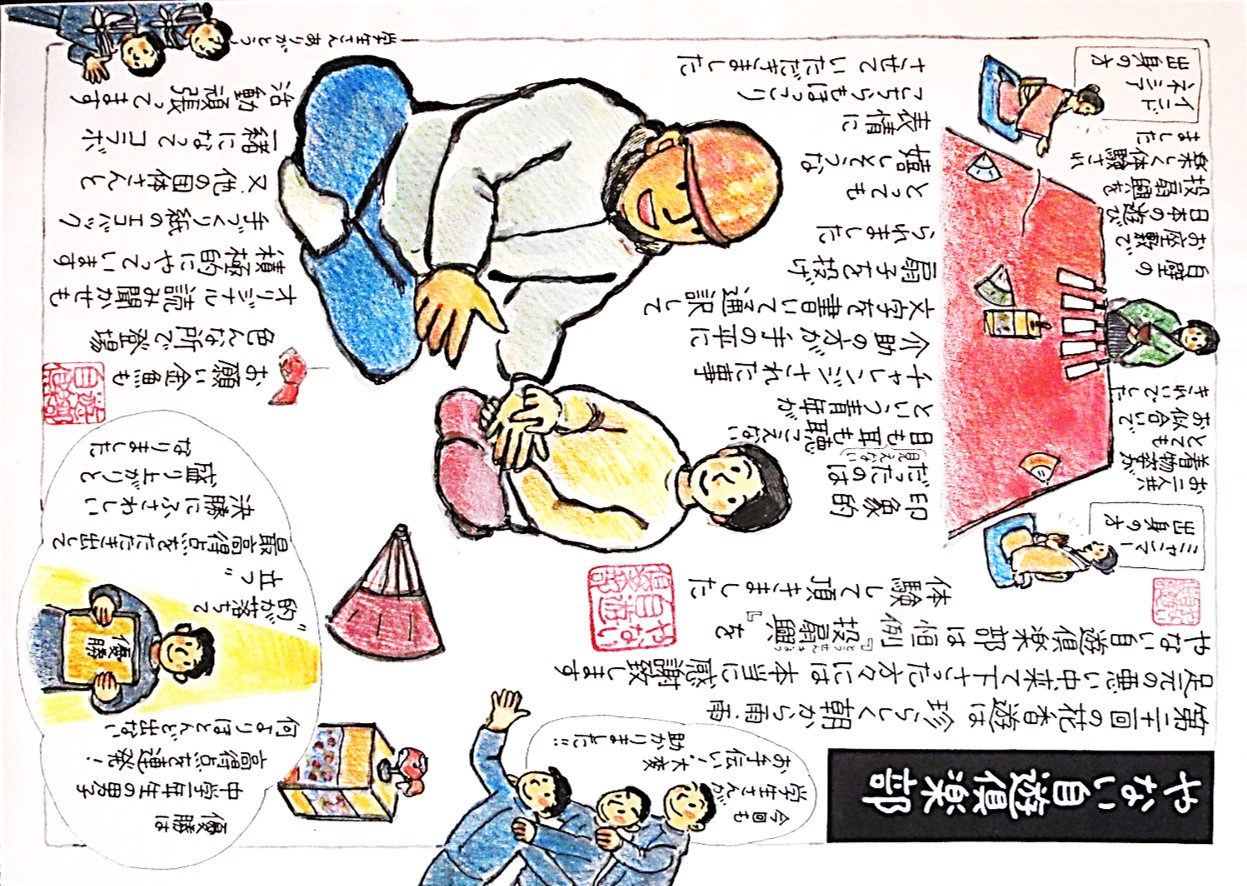 やない自遊倶楽部
第二十回の花香遊は 珍らしく朝から雨・雨
足元の悪い中来て下さった方々には本当に感謝致します
やない自遊倶楽部は恒例『投扇興』を
とうせんきょう
体験して頂きました
やない自遊倶楽部
今回も
学生さんが
お手伝い・大変
助かりました!!
ミャンマー
出身の方
お二人共
着物姿が
とても
お似合いで
きれいでした
お座敷で
日本の遊び
投扇興を
楽しく体験され
ました
インドネシア
出身の方
印象的
だったのは
目も見えない耳も聴こえない
という青年が
チャレンジされた事
介助の方が手の平に
文字を書いて通訳して
扇子を投げ
られました
とっても
嬉しそうな
表情に
こちらもほっこり
させていただきました
優勝は
中学二年生の男子
高得点を連発！
何よりほとんど出ない
優勝
"的が落ちて
立つ"
最高得点をたたき出して
決勝にふさわしい
盛り上がりと
なりました
お願い金魚も
色んな所で登場
オリジナル読み聞かせも
積極的にやっています
手づくり紙のエコバック
又他の団体さんと
一緒になってコラボ
活動頑張ってます
自遊倶楽部
学生さんありがとう